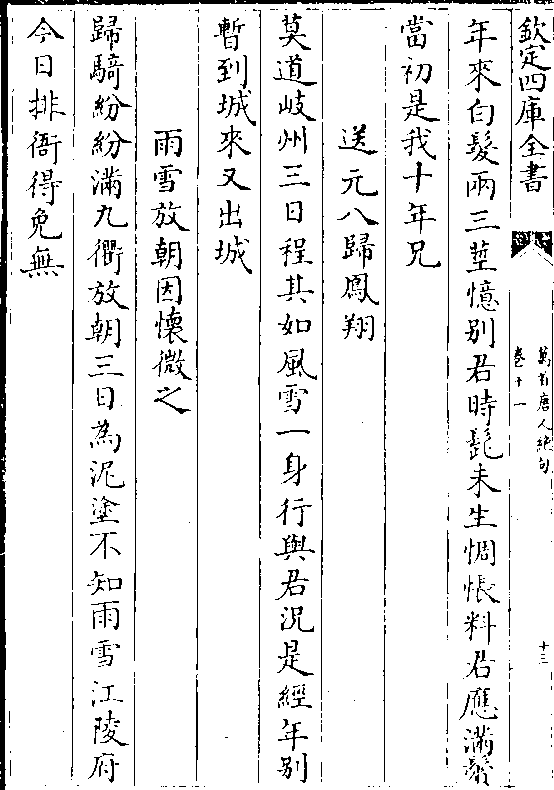 欽定四庫全書
萬首唐人絶句
卷十一
十三
年來白髮兩三莖憶别君時髭未生惆悵料君應滿鬢
當初是我十年兄
送元八歸鳳翔
莫道岐州三日程其如風雪一身行與君況是經年别
暫到城來又出城
雨雪放朝因懷微之
歸騎紛紛滿九衢放朝三日為泥塗不知雨雪江陵府
今日排衙得免無